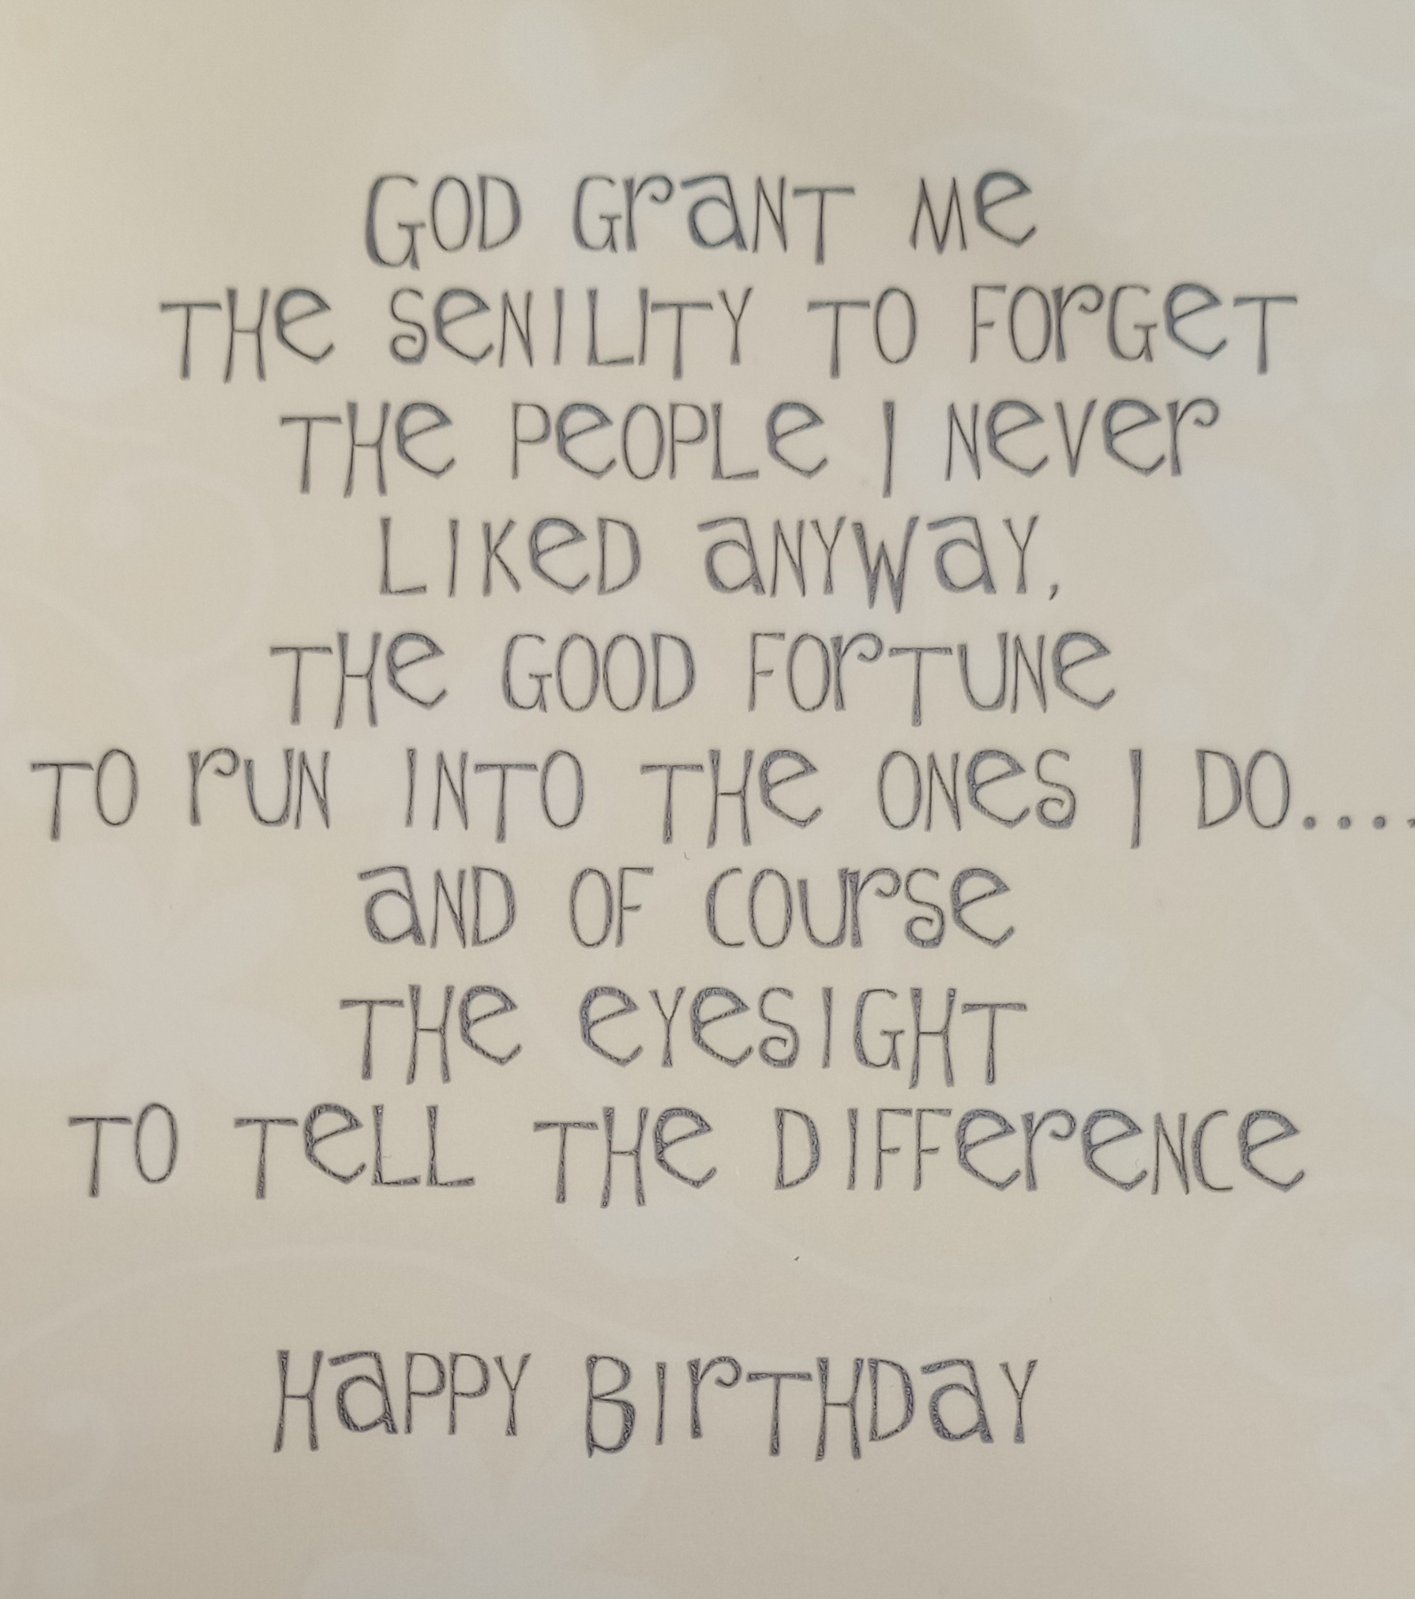 GOD GRANT ME
THE SENILITY TO FORGET
THE PEOPLE I NEVER
LIKED ANYWAY,
THE GOOD FORTUNE
TO RUN INTO THE ONES I DO....
AND OF COURSE
THE EYESIGHT
TO TELL THE DIFFERENCE
HAPPY BIRTHDAY